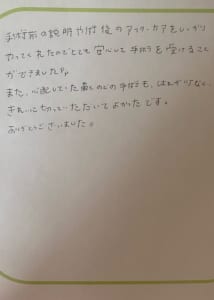 手術前の説明や術後のアフターケアをしっかり
やってくれたのでとても安心して手術を受けること
ができました。
また、心配していた麻酔の手術も、はれがりなく、
きれいに切っていただいてよかったです。
ありがとうございました。